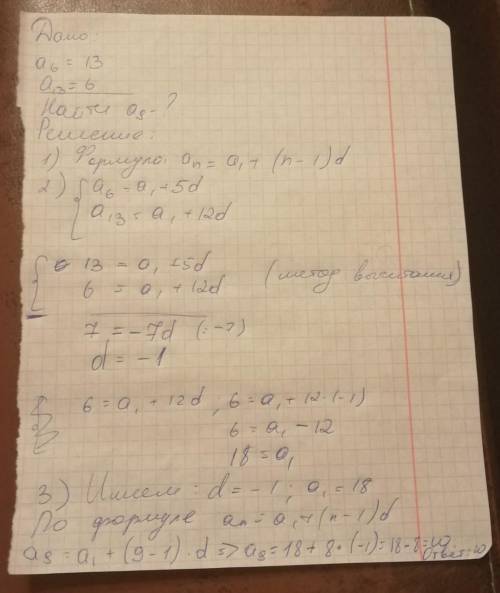 Дано:
a₆ = 13
a₁₃ = 6
Найти a₉ - ?
Решение:
1) Формула: aₙ = a₁ + (n - 1)d
2) { a₆ = a₁ + 5d
a₁₃ = a₁ + 12d
{ 13 = a₁ + 5d
6 = a₁ + 12d (метод вычитания)
7 = -7d (: -7)
d = -1
6 = a₁ + 12d, 6 = a₁ + 12·(-1)
6 = a₁ - 12
18 = a₁
3) Имеем: d = -1; a₁ = 18
По формуле aₙ = a₁ + (n - 1)d
a₉ = a₁ + (9 - 1)·d => a₉ = 18 + 8·(-1) = 18 - 8 = 10
Ответ: 10